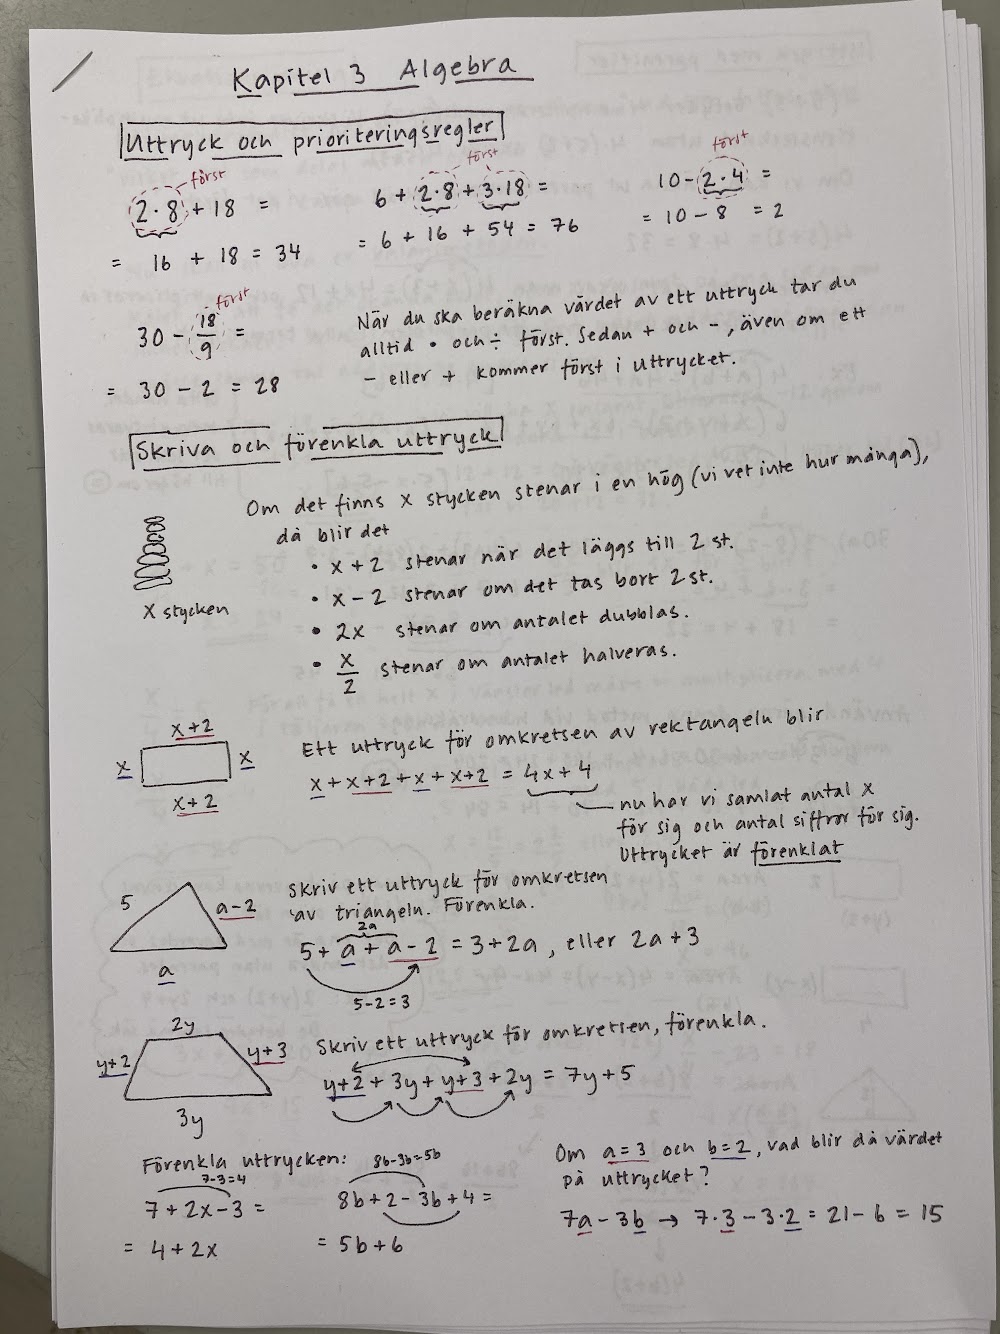 Kapitel 3 Algebra
Uttryck och prioriteringsregler
först
2·8 + 18 =
= 16 + 18 = 34
först
6 + 2·8 + 3·18 =
= 6 + 16 + 54 = 76
först
10 - 2·4 =
= 10 - 8 = 2
först
30 - 18/9 =
= 30 - 2 = 28
När du ska beräkna värdet av ett uttryck tar du
alltid · och ÷ först. Sedan + och -, även om ett
- eller + kommer först i uttrycket.
Skriva och förenkla uttryck
Om det finns x stycken stenar i en hög (vi vet inte hur många),
då blir det
• x+2 stenar när det läggs till 2 st.
• x-2 stenar om det tas bort 2 st.
• 2x stenar om antalet dubblas.
• x/2 stenar om antalet halveras.
x stycken
x+2
x
x
x+2
Ett uttryck för omkretsen av rektangeln blir
x + x+2 + x + x+2 = 4x+4
nu har vi samlat antal x
för sig och antal siffror för sig.
Uttrycket är förenklat
5
a-2
a
Skriv ett uttryck för omkretsen
av triangeln. Förenkla.
2a
5 + a + a - 2 = 3 + 2a, eller 2a + 3
5-2=3
2y
y+2
y+3
3y
Skriv ett uttryck för omkretsen, förenkla.
y+2 + 3y + y+3 + 2y = 7y + 5
Förenkla uttrycken:
7-3=4
7 + 2x - 3 =
= 4 + 2x
8b-3b=5b
8b + 2 - 3b + 4 =
= 5b + 6
Om a=3 och b=2, vad blir då värdet
på uttrycket?
7a - 3b → 7·3 - 3·2 = 21 - 6 = 15